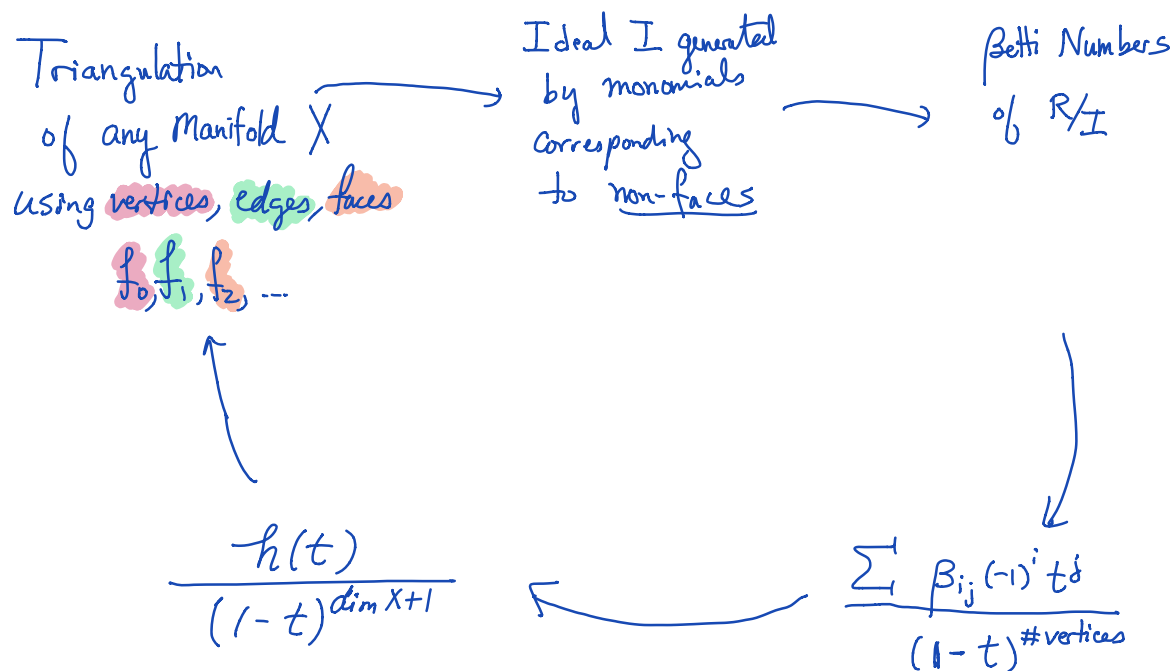 Triangulation
of any Manifold X
using vertices, edges, faces
f₀, f₁, f₂, ...
Ideal I generated
by monomials
corresponding
to non-faces
Betti Numbers
of R/I
∑ β_{ij} (-1)^i t^j
(1-t)^{# vertices}
h(t)
(1-t)^{dim X+1}